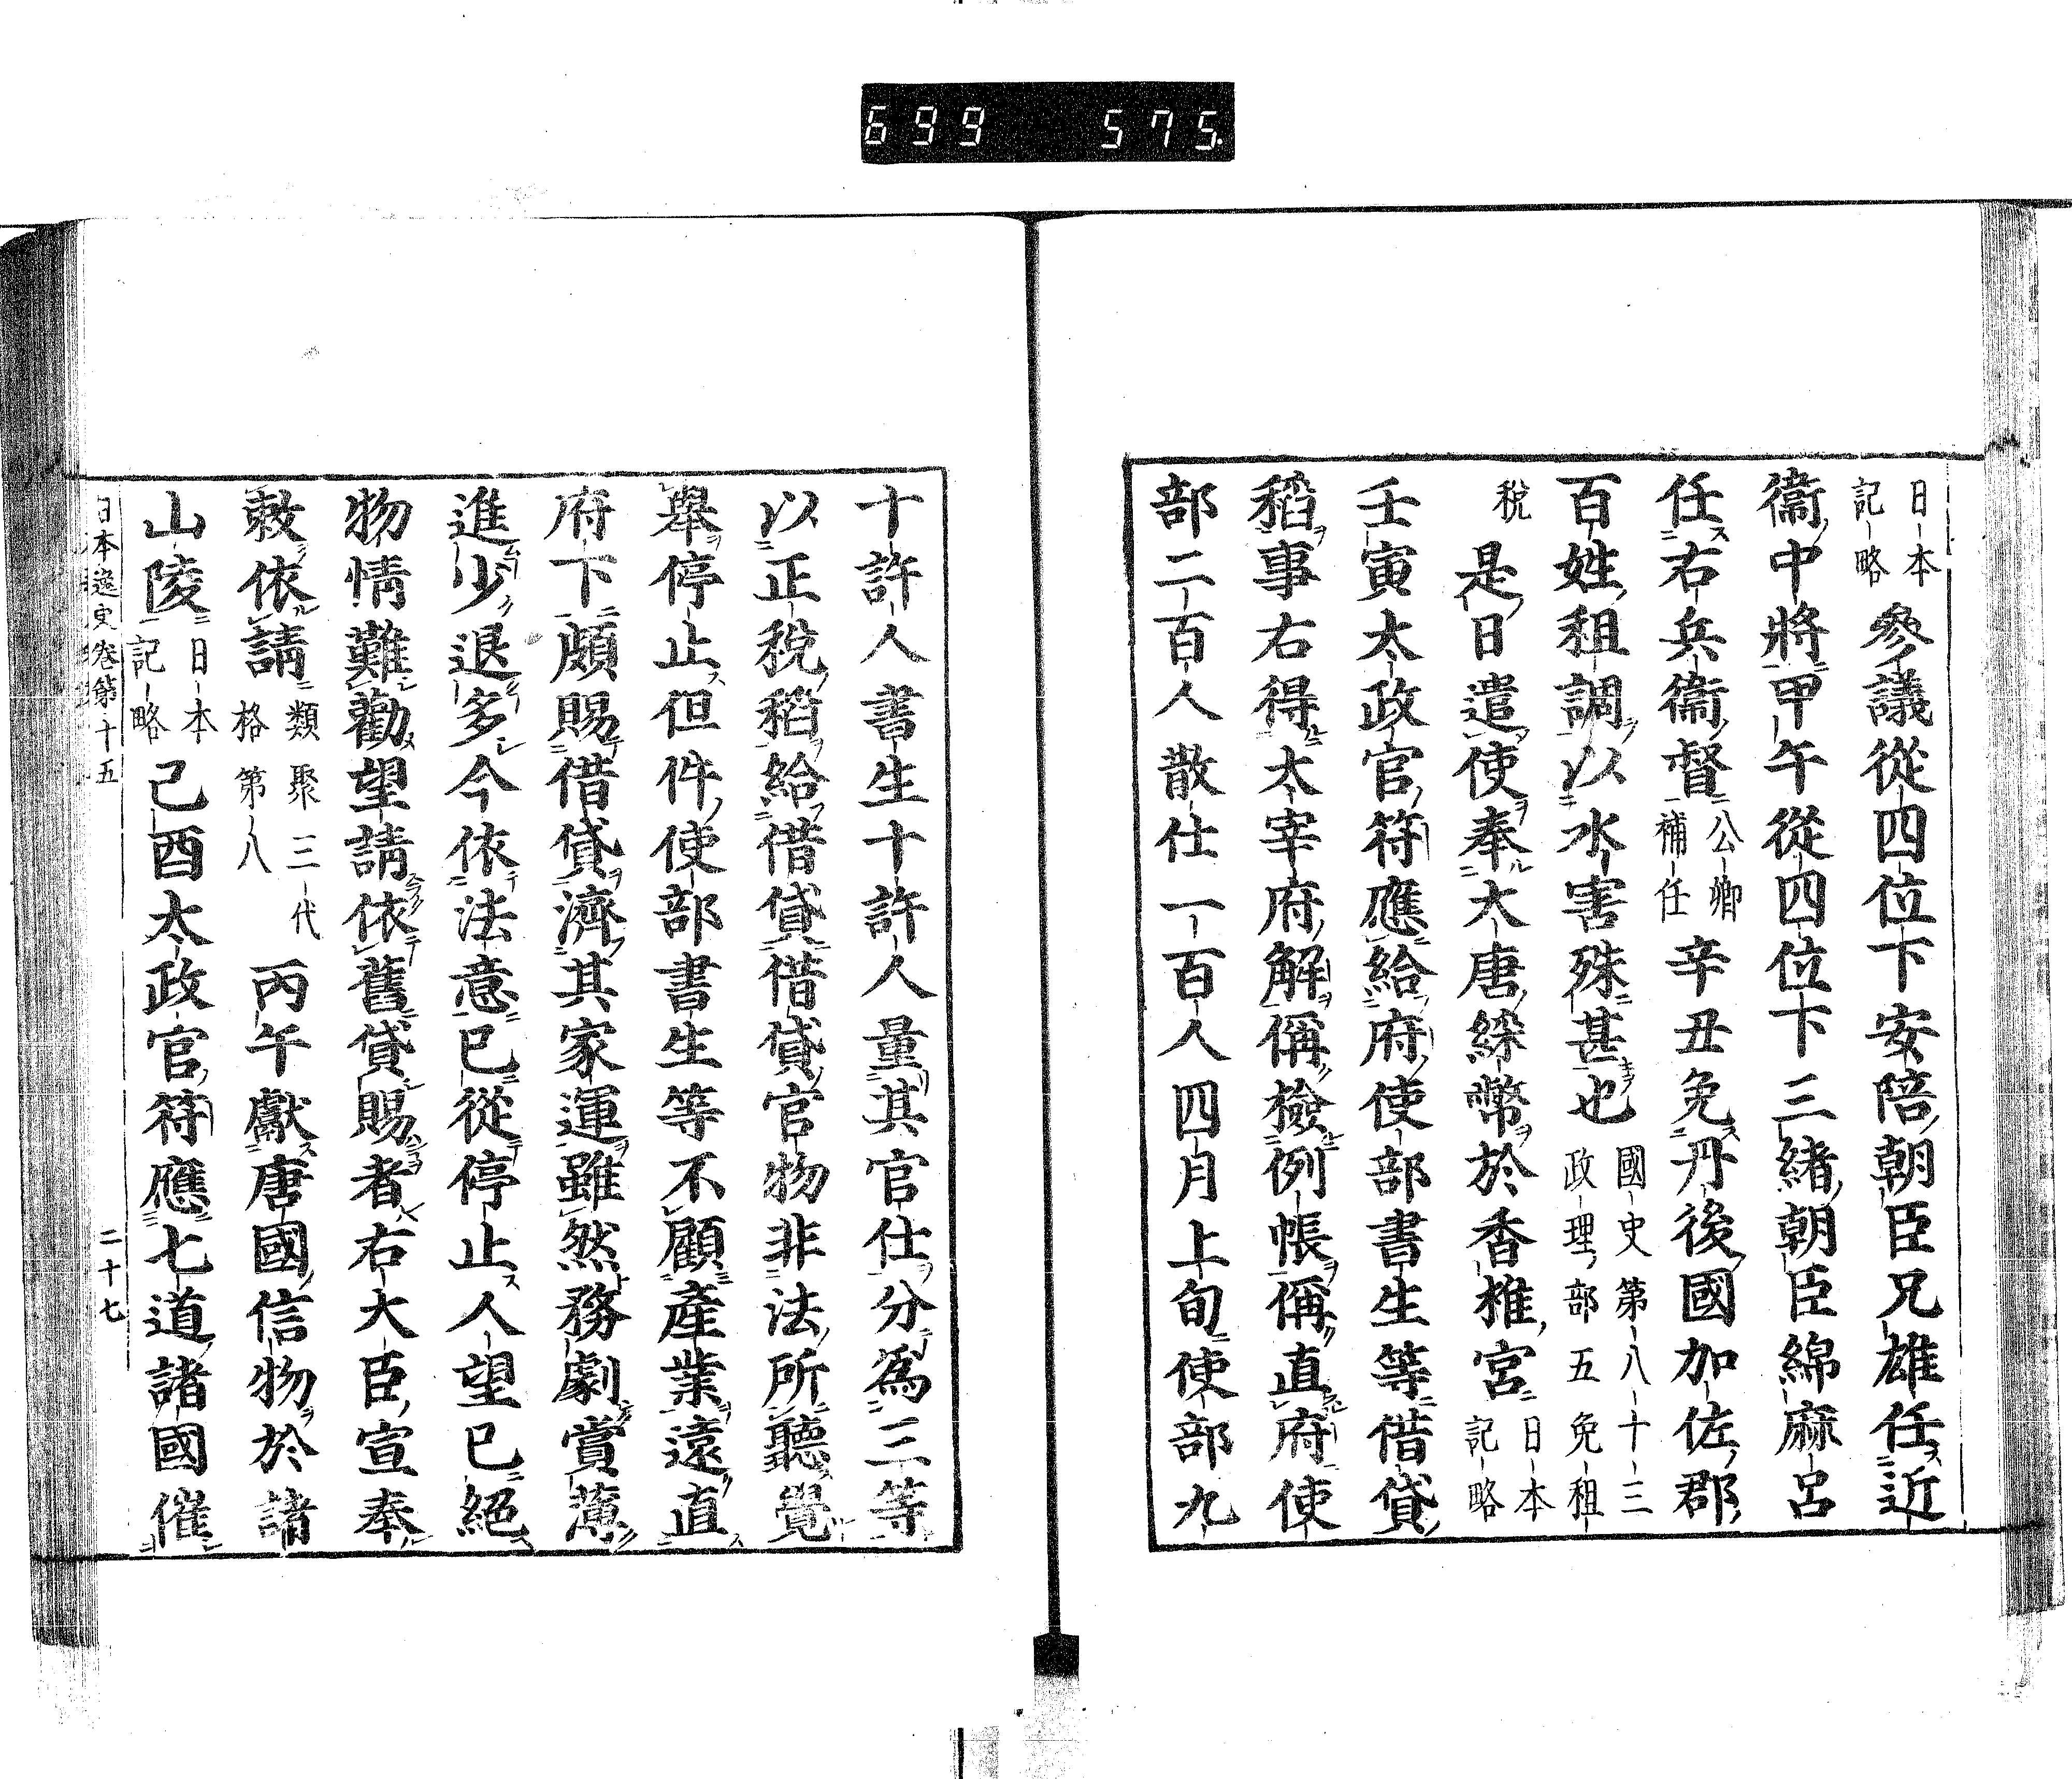 699 575.
日本記略參議從四位下安陪朝臣兄雄任近
衞中將甲午從四位下三緒朝臣綿麻呂
任右兵衞督公卿補任辛丑免丹後國加佐郡
百姓租調以水害殊甚也國史第八十三政理部五免租
稅是日遣使奉大唐綵幣於香椎宮日本記略
壬寅太政官符應給府使部書生等借貸
稻事右得太宰府解偁檢例帳偁直府使
部二百人散仕一百人四月上旬使部九
十許人書生十許人量其官仕分爲三等
以正稅稻給借貸借貸官物非法所聽覺
擧停止但件使部書生等不顧產業遠直
府下頗賜借貸濟其家運雖然務劇賞薄
進少退多今依法意已從停止人望已絕
物情難勸望請依舊貸賜者右大臣宣奉
敕依請類聚三代格第八丙午獻唐國信物於諸
山陵日本記略己酉太政官符應七道諸國催
日本逸史卷第十五 二十七